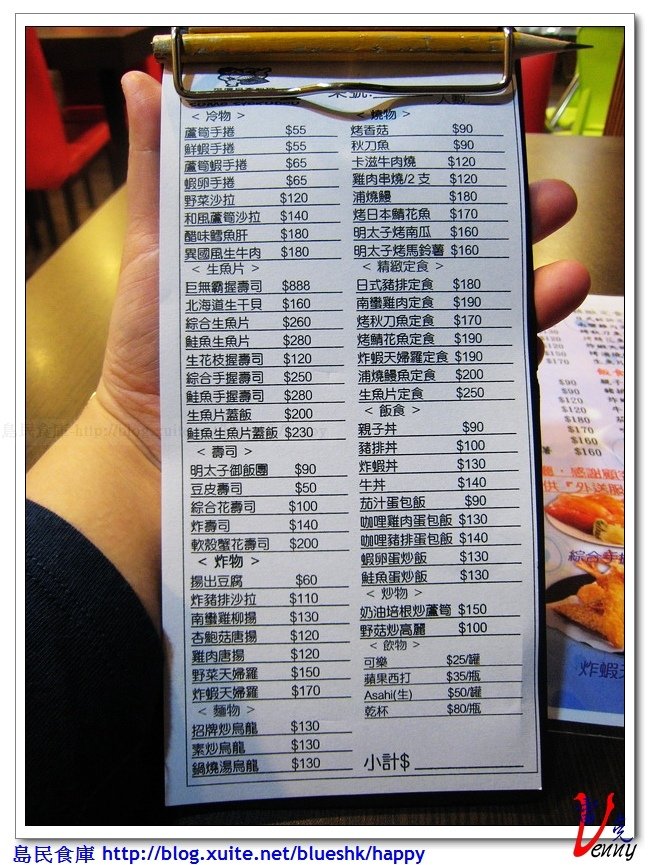 桌號:
人數:
< 冷物 >
蘆筍手捲 $55
鮮蝦手捲 $55
蘆筍蝦手捲 $65
蝦卵手捲 $65
野菜沙拉 $120
和風蘆筍沙拉 $140
醋味鱈魚肝 $180
異國風生牛肉 $180
< 生魚片 >
巨無霸握壽司 $888
北海道生干貝 $160
綜合生魚片 $260
鮭魚生魚片 $280
生花枝握壽司 $120
綜合手握壽司 $250
鮭魚手握壽司 $280
生魚片蓋飯 $200
鮭魚生魚片蓋飯 $230
< 壽司 >
明太子御飯團 $90
豆皮壽司 $50
綜合花壽司 $100
炸壽司 $140
軟殼蟹花壽司 $200
< 炸物 >
揚出豆腐 $60
炸豬排沙拉 $110
南蠻雞柳揚 $130
杏鮑菇唐揚 $120
雞肉唐揚 $120
野菜天婦羅 $150
炸蝦天婦羅 $170
< 麵物 >
招牌炒烏龍 $130
素炒烏龍 $130
鍋燒湯烏龍 $130
< 燒物 >
烤香菇 $90
秋刀魚 $90
卡滋牛肉燒 $120
雞肉串燒/2 支 $120
浦燒鰻 $180
烤日本鯖花魚 $170
明太子烤南瓜 $160
明太子烤馬鈴薯 $160
< 精緻定食 >
日式豬排定食 $180
南蠻雞肉定食 $190
烤秋刀魚定食 $170
烤鯖花魚定食 $190
炸蝦天婦羅定食 $190
浦燒鰻魚定食 $200
生魚片定食 $250
< 飯食 >
親子丼 $90
豬排丼 $100
炸蝦丼 $130
牛丼 $140
茄汁蛋包飯 $90
咖哩雞肉蛋包飯 $130
咖哩豬排蛋包飯 $140
蝦卵蛋炒飯 $130
鮭魚蛋炒飯 $130
< 炒物 >
奶油培根炒蘆筍 $150
野菇炒高麗 $100
< 飲物 >
可樂 $25/罐
蘋果西打 $35/瓶
Asahi(生) $50/罐
乾杯 $80/瓶
小計$
飯食
$90
$90
$120
$120
$180
$170
$160
$160
感謝顧
供『外送服
綜合手
炸蝦天
島民食庫 http://blog.xuite.net/blueshk/happy
Venny